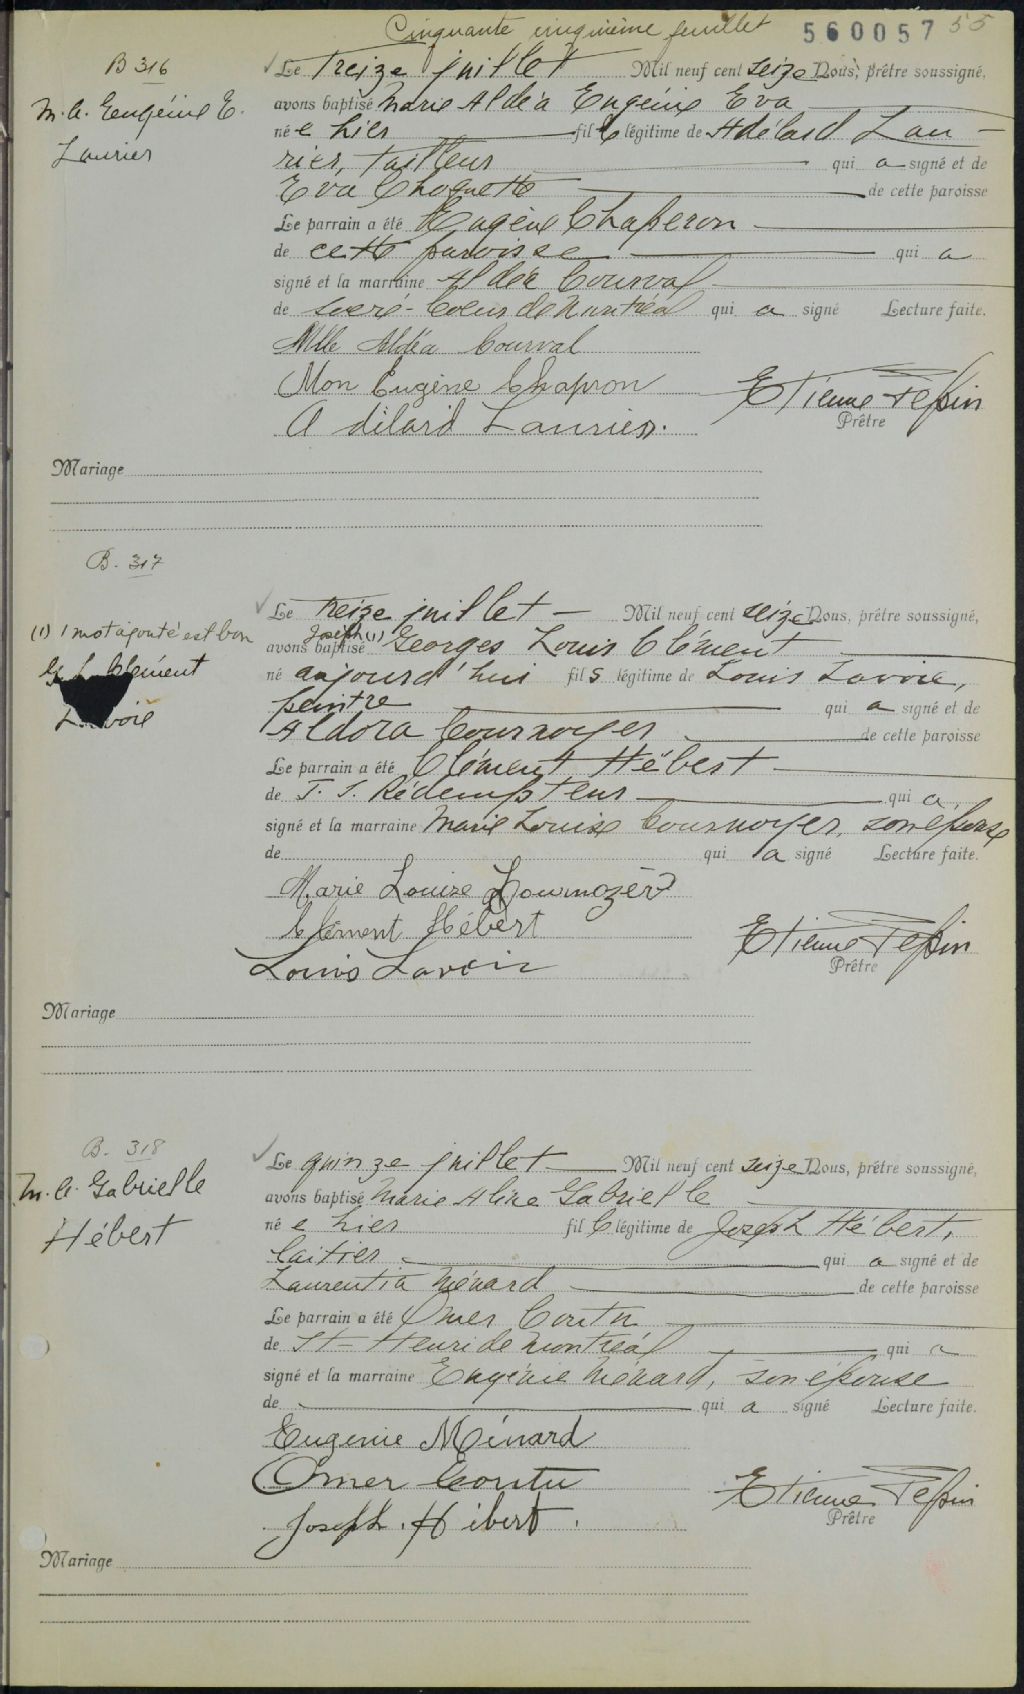 Cinquante cinquième feuillet 560057 55
B 316
M. A. Eugénie E.
Laurier
Le Treize juillet Mil neuf cent seize Nous, prêtre soussigné,
avons baptisé Marie Aldéa Eugénie Eva
né e hier fille légitime de Adélard Lau-
rier, Tailleur qui a signé et de
Eva Choquette de cette paroisse
Le parrain a été Eugène Chaperon
de cette paroisse qui a
signé et la marraine Aldéa Courval
de Sacré-Coeur de Montréal qui a signé Lecture faite.
Mlle Aldéa Courval
Mon Eugène Chapron
Adilard Laurier.
Etienne Pepin
Prêtre
Mariage
B. 317
(1) 1 mot ajouté est bon
G. L. Clément
Lavoie
Le Treize juillet Mil neuf cent seize Nous, prêtre soussigné,
avons baptisé Joseph (1) Georges Louis Clément
né aujourd'hui fils légitime de Louis Lavoie,
peintre qui a signé et de
Aldora Cournoyer de cette paroisse
Le parrain a été Clément Hébert
de T. S. Rédempteur qui a
signé et la marraine Marie Louise Cournoyer, son épouse
de qui a signé Lecture faite.
Marie Louise
Clément Hébert
Louis Lavoie
Etienne Pepin
Prêtre
Mariage
B. 318
M. A. Gabrielle
Hébert
Le quinze juillet Mil neuf cent seize Nous, prêtre soussigné,
avons baptisé Marie Aline Gabrielle
né e hier fille légitime de Joseph Hébert,
laitier qui a signé et de
Laurentia Ménard de cette paroisse
Le parrain a été Omer Coutu
de St-Henri de Montréal qui a
signé et la marraine Eugénie Ménard, son épouse
de qui a signé Lecture faite.
Eugenie Ménard
Omer Coutu
Joseph. Hibert.
Etienne Pepin
Prêtre
Mariage